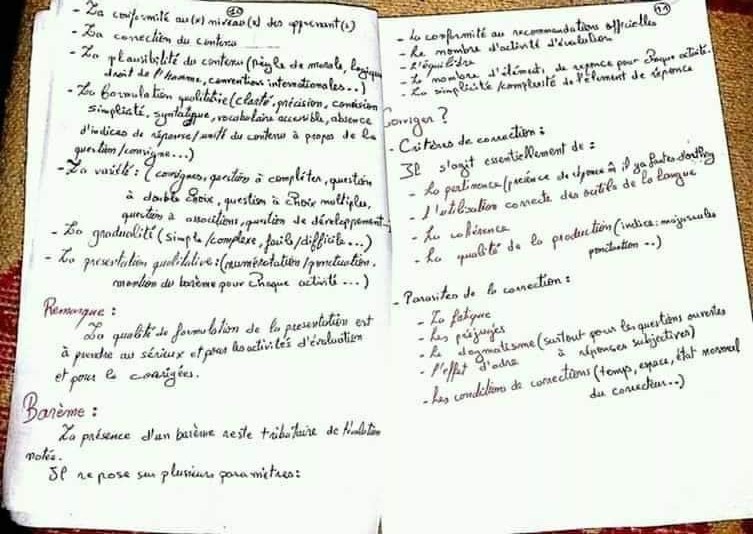 10
- La conformité au(x) niveau(x) des apprenant(s)
- La correction du contenu
- La plausibilité du contenu (règle de morale, logique
droit de l'homme, conventions internationales...)
- La formulation qualitative (clarté, précision, concision
simplicité, syntaxique, vocabulaire accessible, absence
d'indices de réponse/unité du contenu à propos de la
question/consigne...)
- La variété : (consignes, question à compléter, question
à double choix, question à choix multiples,
question à associations, question de développement
- La gradualité (simple/complexe, facile/difficile...)
- La présentation qualitative : (numérotation/ponctuation.
mention du barème pour chaque activité...)
Remarque :
La qualité de formulation de la présentation est
à prendre au sérieux et pour les activités d'évaluation
et pour le corrigées.
Barème :
La présence d'un barème reste tributaire de l'évaluation
notée.
Il repose sur plusieurs paramètres :
11
- La conformité au recommandations officielles
- Le nombre d'activité d'évaluation
- L'équilibre
- Le nombre d'élément, de réponse pour chaque activité.
- La simplicité/complexité de l'élément de réponse
Corriger ?
- Critères de correction :
Il s'agit essentiellement de :
- La pertinence (présence de réponse m̂ il ya fautes d'orthog
- L'utilisation correcte des outils de la langue
- La cohérence
- La qualité de la production (indice : majuscules
ponctuation ..)
- Parasites de la correction :
- La fatigue
- Les préjugés
- Le dogmatisme (surtout pour les questions ouvertes
à réponses subjectives)
- L'effet d'odre
- Les conditions de corrections (temps, espace, état
du correcteur..)